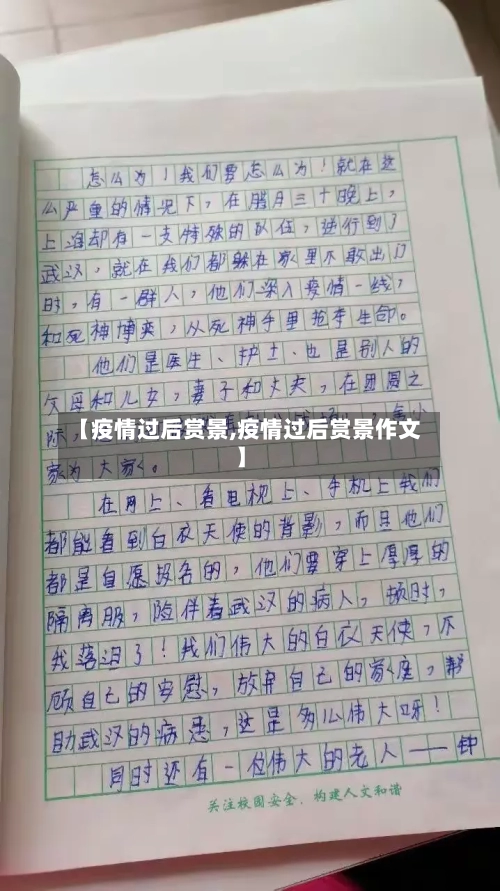 怎么为！我们要怎么为！就在这
么严重的情况下，在腊月三十晚上，
上海却有一支特殊的队伍，逆行到了
武汉，就在我们都躲在家里不敢出门
时，有一群人，他们深入疫情一线，
和死神博奕，从死神手里抢夺生命。
他们是医生、护士、也是别人的
父母和儿女，妻子和丈夫，在团圆之
际，
【疫情过后赏景,疫情过后赏景作文
】
家为大家。
在网上、看电视上、手机上我们
都能看到白衣天使的背影，而且他们
都是自愿报名的，他们要穿上厚厚的
隔离服，陪伴着武汉的病人，顿时，
我落泪了！我们伟大的白衣天使，不
顾自己的安慰，放弃自己的家庭，帮
助武汉的病患，这是多么伟大呀！
同时还有一位伟大的老人——钟
关注校园安全，构建人文和谐